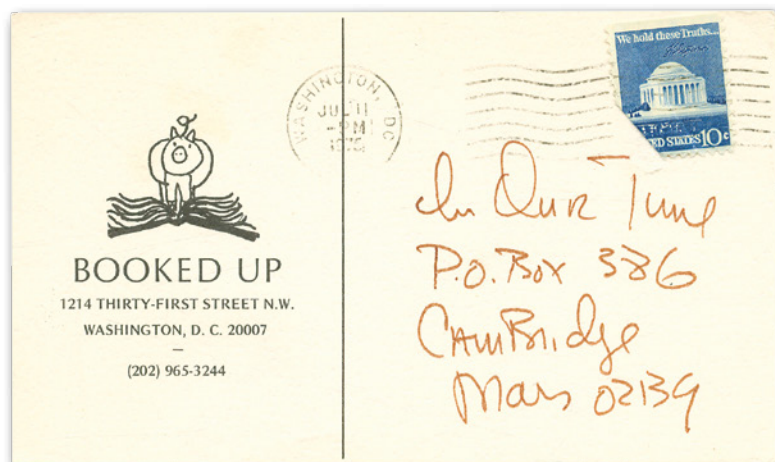 BOOKED UP
1214 THIRTY-FIRST STREET N.W.
WASHINGTON, D. C. 20007
—
(202) 965-3244
WASHINGTON, DC
JUL 11
-PM
We hold these Truths...
UNITED STATES 10c
In Our Time
P.O. Box 386
CamBridge
Mass 02139